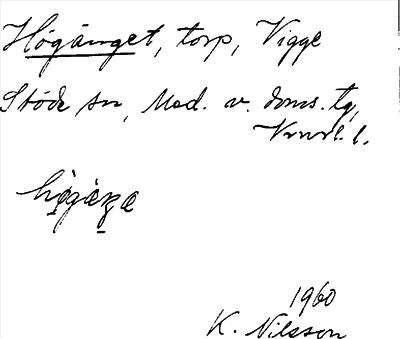 Högänget, torp, Vigge
Stöde sn, Med. v. doms. tg,
Vnrl. l.
högäŋe
1960
K. Nilsson